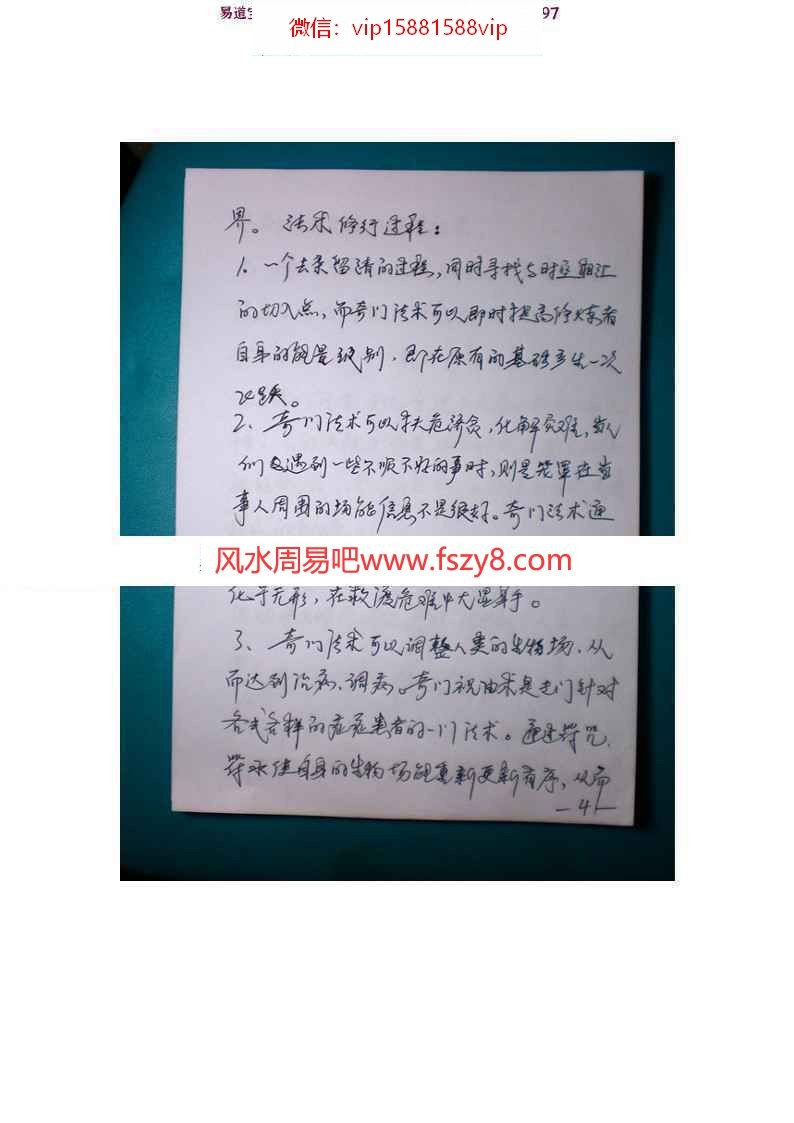 易道
微信：vip15881588vip
97
界。法术修行过程：
1、一个去杂留清的过程，同时寻找与时空相汇
的切入点，而奇门法术可以即时提高修炼者
自身的能量级别，即在原有的基础产生一次
飞跃。
2、奇门法术可以扶危济贫，化解灾难，当人
们遇到一些不顺不好的事时，则是笼罩在当
事人周围的场能信息不是很好。奇门法术通
风水周易吧www.fszy8.com
化于无形，在救渡危难中大显身手。
3、奇门法术可以调整人类的生物场，从
而达到治病、调病。奇门祝由术是专门针对
各式各样的症症患者的一门法术。通过符咒、
符水使自身的生物场能重新更新有序，从而
—4—